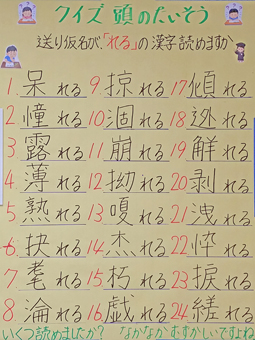 クイズ 頭のたいそう
送り仮名が、「れる」の漢字読めますか
1. 呆れる 9. 掠れる 17. 傾れる
2 憧れる 10 涸れる 18 逊れる
3 露れる 11 崩れる 19 解れる
4. 薄れる 12 拗れる 20 剥れる
5 熟れる 13 嗄れる 21. 洩れる
6. 抉れる 14. 杰れる 22 忰れる
7. 耄れる 15. 朽れる 23. 捩れる
8. 淪れる 16. 戯れる 24. 縒れる
いくつ読めましたか? なかなかむずかしいですよね